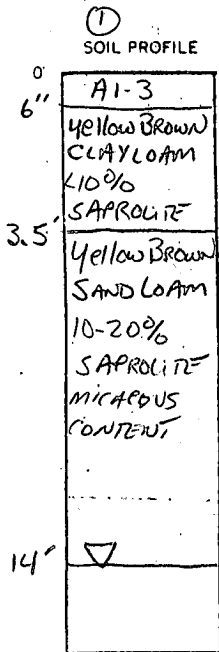 1
SOIL PROFILE
0
A1-3
6"
Yellow BROWN
CLAYLOAM
<10%
SAPROLITE
3.5'
Yellow BROWN
SAND LOAM
10-20%
SAPROLITE
MICACOUS
CONTENT
14'